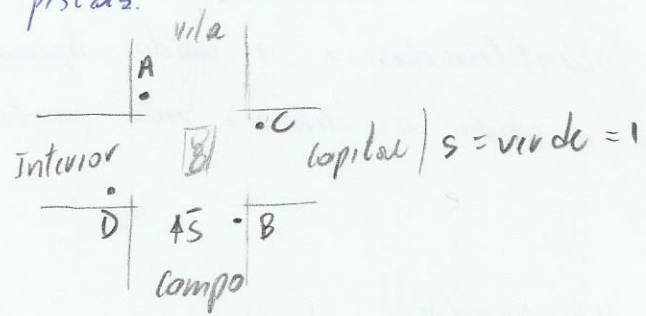 pistas.
vila
A
C
Interior
Capital | S = verde = 1
D
S
B
Campo